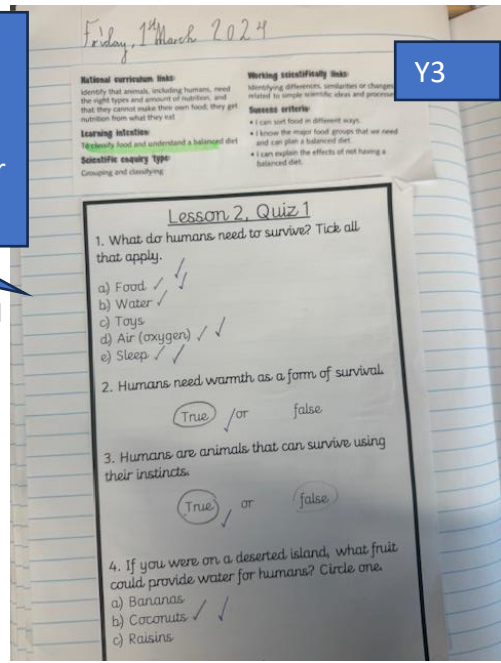 Friday, 1st March 2024
Y3
National curriculum links:
Identify that animals, including humans, need
the right types and amount of nutrition, and
that they cannot make their own food; they get
nutrition from what they eat
Learning intention:
To classify food and understand a balanced diet
Scientific enquiry type:
Grouping and classifying
Working scientifically links:
Identifying differences, similarities or changes
related to simple scientific ideas and
Success criteria:
• I can sort food in different ways.
• I know the major food groups that we need
and can plan a balanced diet.
• I can explain the effects of not having a
balanced diet.
Lesson 2, Quiz 1
1. What do humans need to survive? Tick all
that apply.
a) Food
b) Water
c) Toys
d) Air (oxygen)
e) Sleep
2. Humans need warmth as a form of survival.
True or false
3. Humans are animals that can survive using
their instincts.
True or false
4. If you were on a deserted island, what fruit
could provide water for humans? Circle one.
a) Bananas
b) Coconuts
c) Raisins